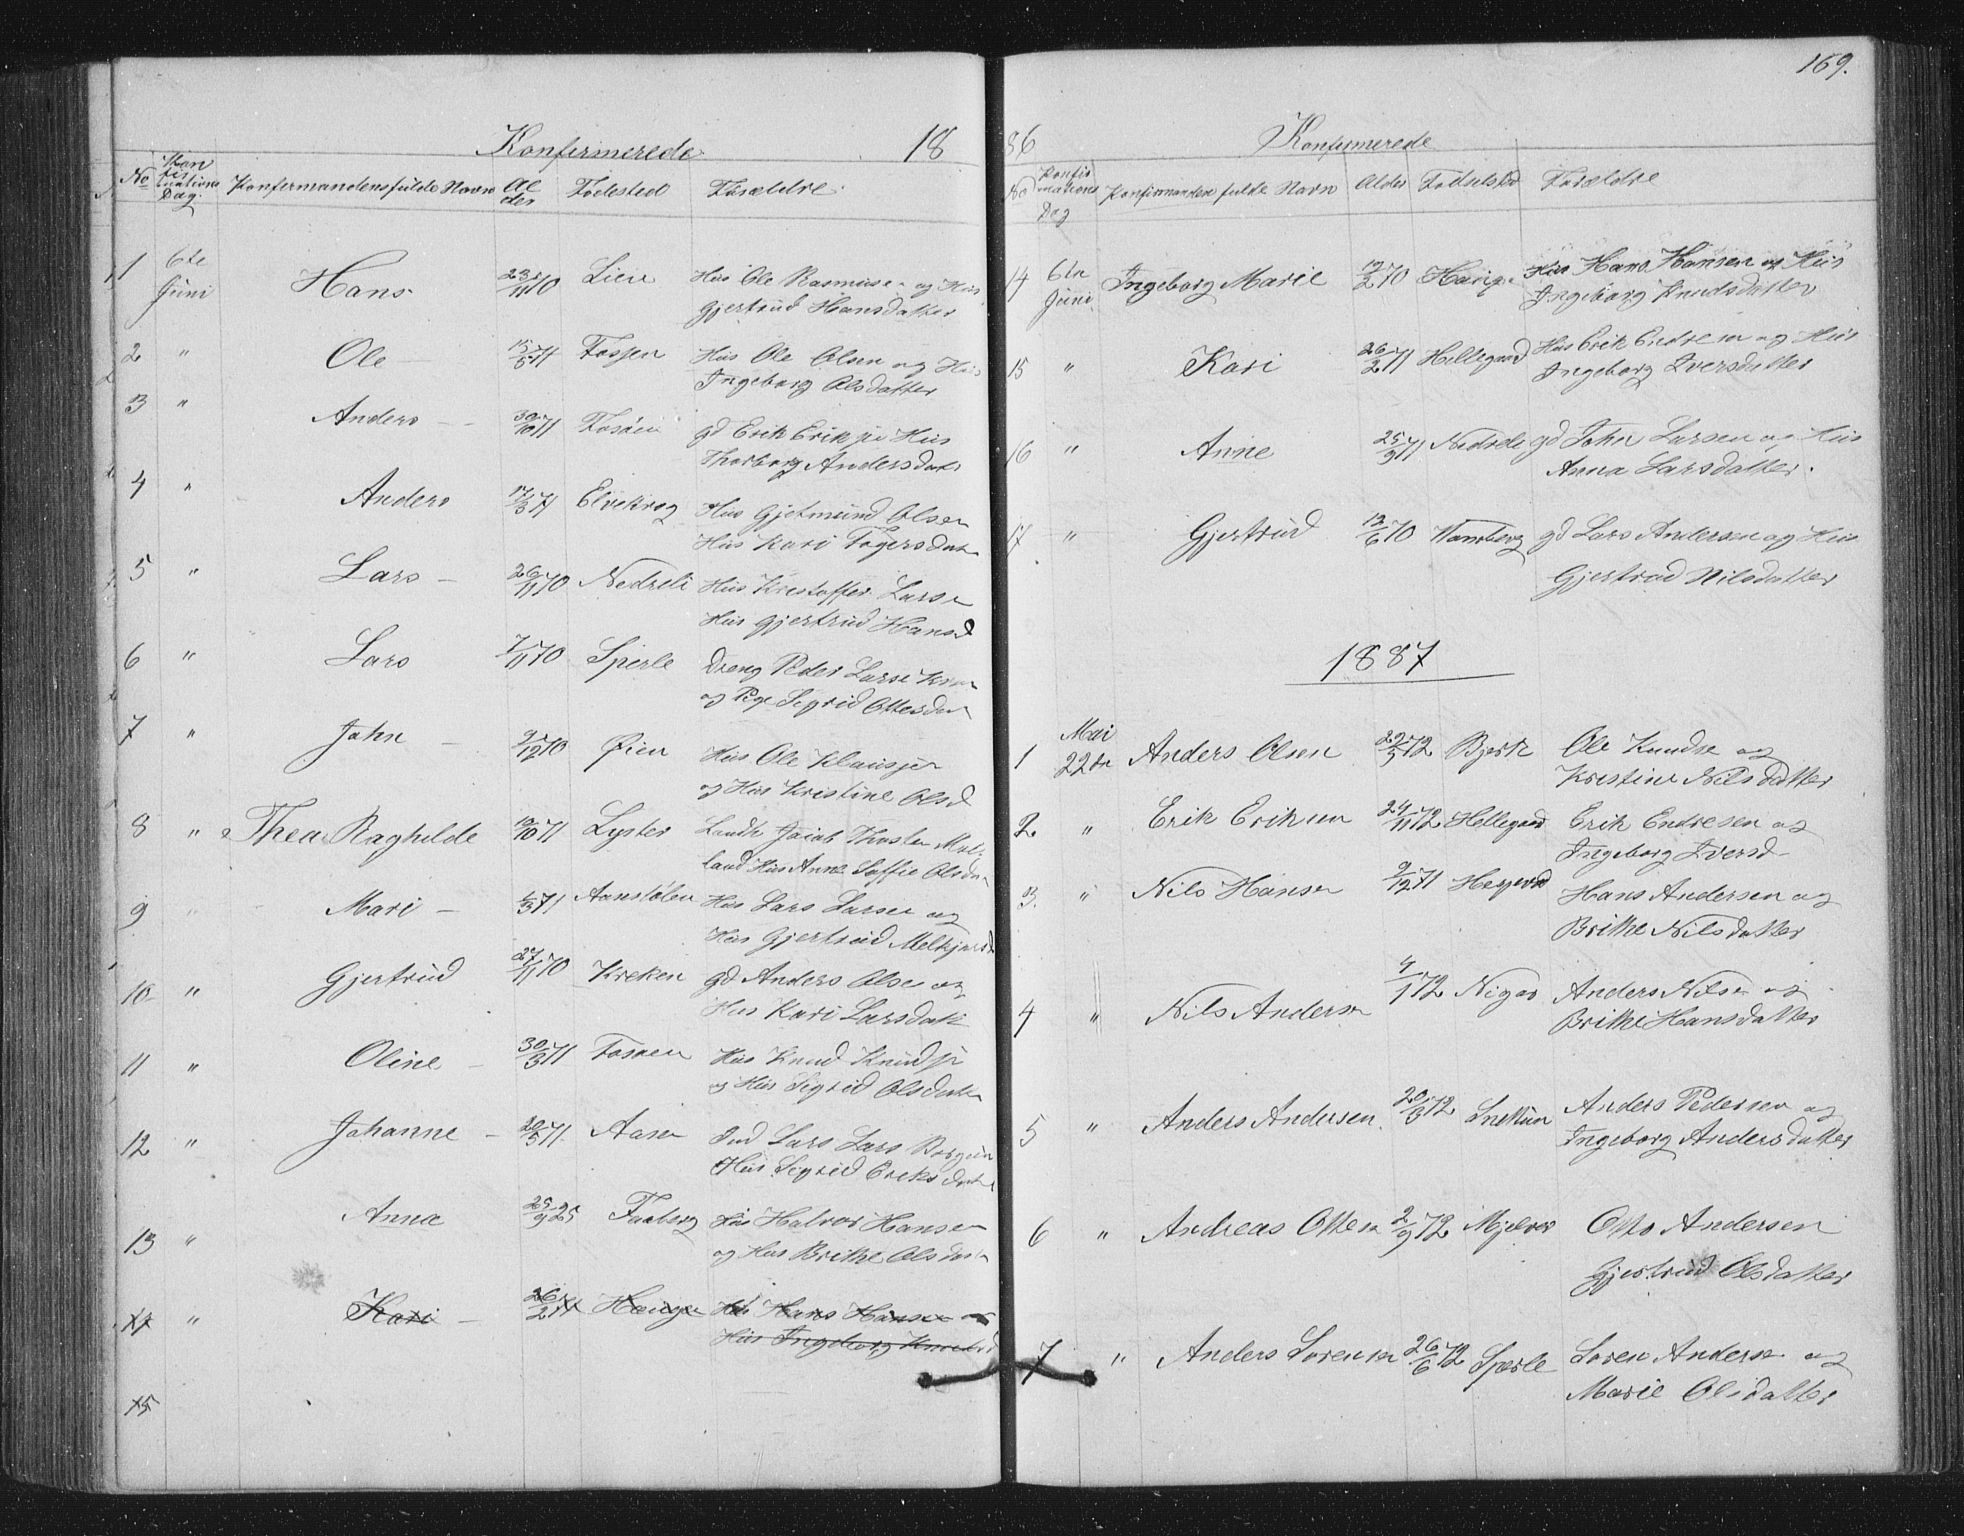 Konfirmerede 18
No Konfirmations Dag. Konfirmandens fulde Navn Alder Fødested Forældre.
1 6te Juni Hans 23/11 70 Lien Hus Ole Rasmuse- og Hus
Gjertrud Hansdatter
2 " Ole 15/5 71 Fossen Hus Ole Olsen og Hus
Ingeborg Olsdatter
3 " Anders - 30/10 71 Fosøen gd Erik Erikse Hus
Thorborg Andersdat
4 " Anders 17/3 71 Elvekrog Hus Gjetmund Olsen
Hus Kari Togersdat
5 " Lars - 26/11 70 Nedreli Hus Kristoffer Larse
Hus Gjertrud Hansd
6 " Lars 7/11 70 Sperle Dreng Peder Larse
og Pige Sigrid Ottesdat
7 " John - 9/12 70 Øien Hus Ole Klausse
og Hus Kristine Olsd
8 " Thea Raghilde 12/10 71 Lyster Jacob
land Hus Anne Soffie Olsda
9 " Mari - 6/3 71 Aanstølen Hus Lars Larse og
Hus Gjertrud Melkjørsd
10 " Gjertrud 27/11 70 Kreken gd Anders Olse og
Hus Kari Larsdatt
11 " Oline - 30/3 71 Fosøen Hus Knud Knudse
og Hus Sigrid Olsdatte
12 " Johanne - 20/5 71. Aasen Ind Lars Lars
Hus Sigrid Eriksdat
13 " Anna 25/9 Faaberg Hus Halvor Hanse
og Hus Brithe Olsdat
14 " Kari - 26/2 71 Hauge Hus Hans Hanse og
Hus Ingeborg Knudsd
15
169.
86 Konfirmerede
No Konfirmations Dag Konfirmandens fulde Navn Alder Fødselsted Forældre
14 6te Juni Ingeborg Marie 12/2 70 Hauge Hus Hans Hansen og Hus
Ingeborg Knudsdatter
15 " Kari 26/2 71 Hellegaard Hus Erik Endresen og Hus
Ingeborg Iversdatter
16 " Anne 25/9 71 Nedreli gd John Larsen og Hus
Anna Larsdatter.
17 " Gjertrud 12/6 70 Vamberg gd Lars Andersen og Hus
Gjertrud Nilsdatter
1887
1 Mai 22de Anders Olsen 22/5 72 Bjørk Ole Knudse og
Kristine Nilsdatter
2 " Erik Eriksen 24/11 72 Hellegaard Erik Endresen og
Ingeborg Iversd-
3. " Nils Hanse 9/12 71 Hans Andersen og
Brithe Nilsdatter
4 " Nils Anderse 4/1 72 Nigar Anders Nilse og
Brithe Hansdatter
5 " Anders Andersen. 20/3 72 Snettun Anders Pedersen og
Ingeborg Andersdatter
6 " Andreas Ottesen 2/9 72 Mjelver Otto Andersen
Gjertrud Olsdatter
7 " Anders Sorensen 26/6 72 Sperle Soren Anderse og
Marie Olsdatter